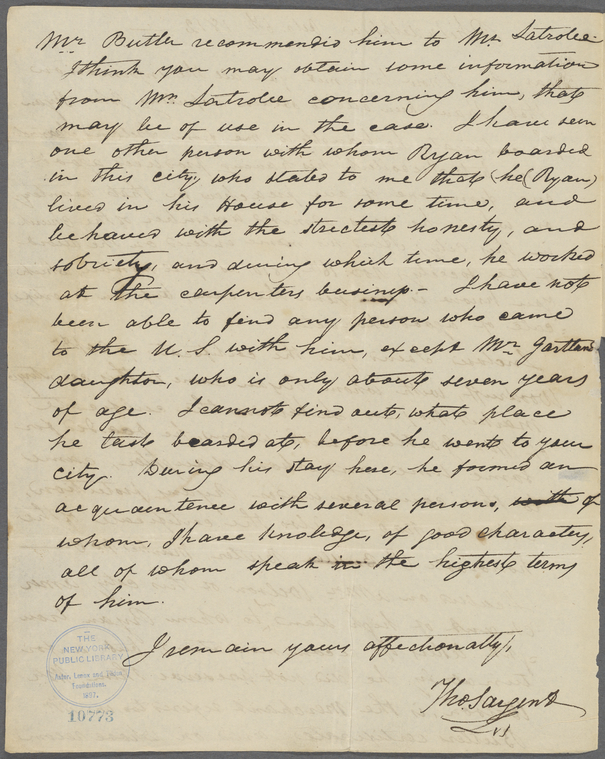 Mr Butler recommendid him to Mr Latrobe.
I think you may obtain some information
from Mr. Latrobe concerning him, that
may be of use in the case. I have seen
one other person with whom Ryan boarded
in this city, who stated to me that (he (Ryan)
lived in his House for some time, and
behaved with the strictest honesty, and
sobriety, and during which time, he worked
at the carpenters business. - I have not
been able to find any person who came
to the U. S. with him, except Mrs Gartlans
daughter, who is only about seven years
of age. I cannot find out, what place
he last boarded at, before he went to your
city. During his stay here, he formed an
acquaintence with several persons, with of
whom, I have knoledge, of good character,
all of whom speak in the highest terms
of him.
I remain yours affectionatly,
Tho Sargent
THE
NEW YORK
PUBLIC LIBRARY
Astor, Lenox and Tilden
Foundations.
1897.
10773